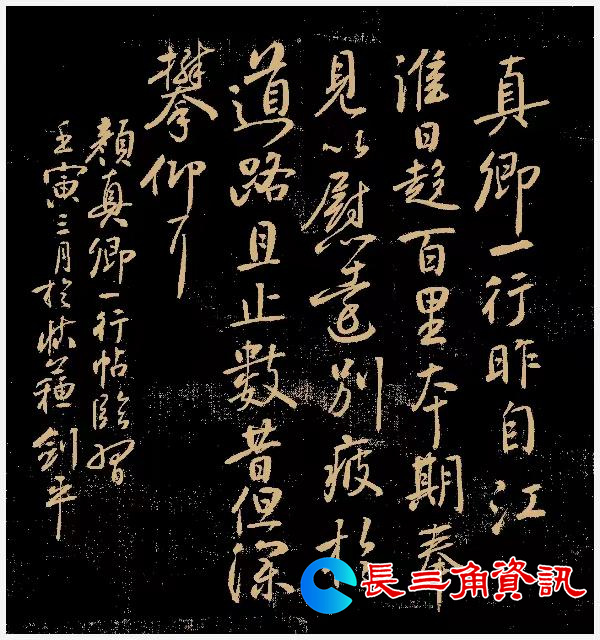 真卿一行昨自江
淮日趍百里本期奉
見以慰遠別疲於
道路且止數昔但深
攀仰耳
顏真卿一行帖臨習
壬寅三月於劍平
長三角資訊